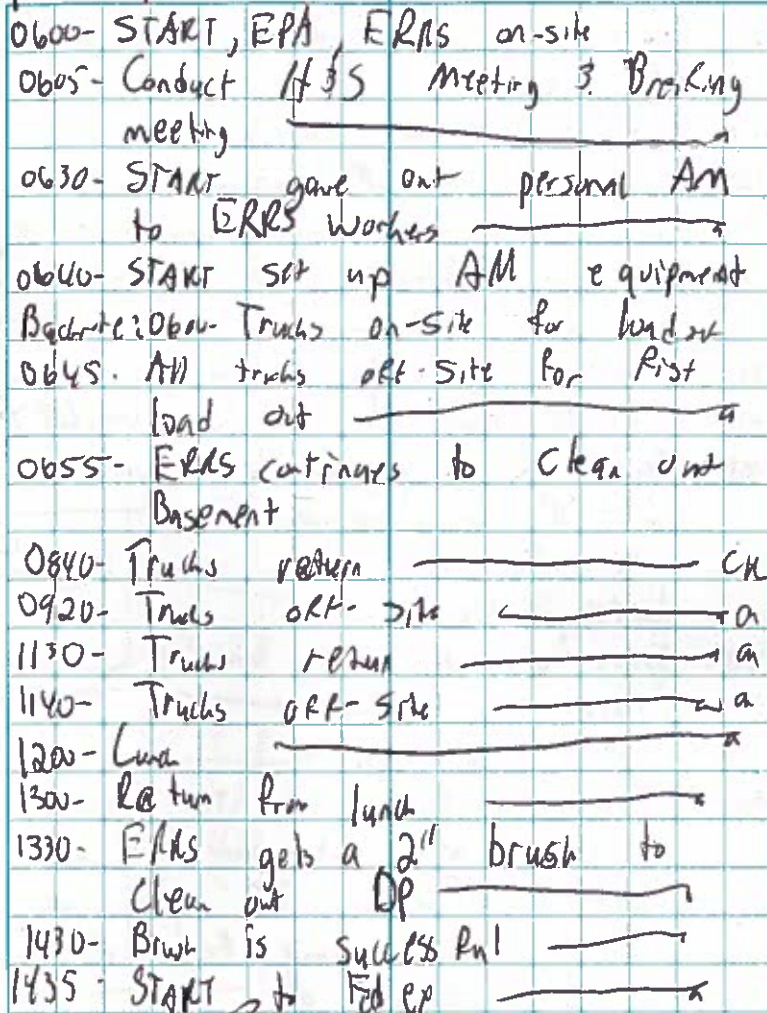 0600- START, EPA, ERRS on-site
0605- Conduct H&S Meeting & Breifing
meeting
0630- START gave out personal AM
to ERRS workers
0640- START set up AM equipment
0600- Trucks on-site for load out
0645. All trucks off-site for first
load out
0655- ERRS continues to Clean out
Basement
0840- Trucks return CK
0920- Trucks off-site
1130- Trucks return
1140- Trucks off-site
1200- Lunch
1300- Return from lunch
1330- ERRS gets a 2" brush to
Clean out DP
1430- Brush is successful
1435- START to Fed ex